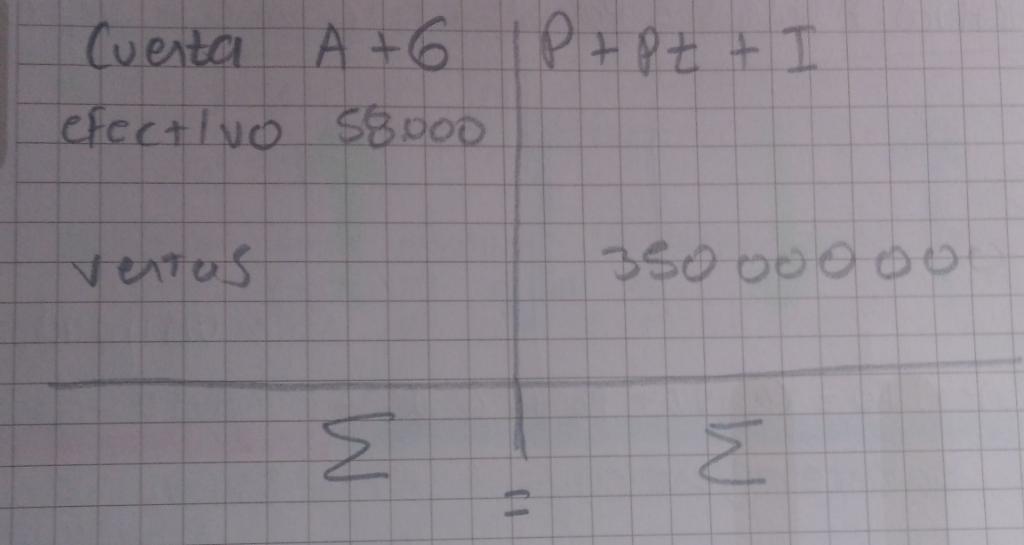 Cuenta A + G P + Pt + I
efectivo 58.000
ventas 35000000
Σ Σ
=